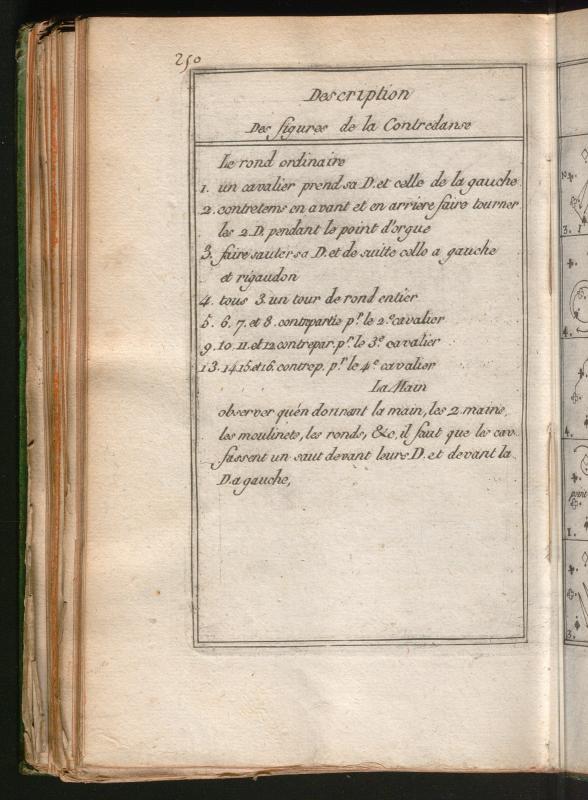 250
Description
Des figures de la Contredanse
Le rond ordinaire
1. un cavalier prend sa D. et celle de la gauche
2. contretems en avant et en arriere faire tourner
les 2. D. pendant le point d'orgue
3. faire sauter sa D. et de suitte celle a gauche
et rigaudon
4. tous 3. un tour de rond entier
5. 6. 7. et 8. contrepartie pr. le 2e. cavalier
9. 10. 11. et 12. contrepar. pr. le 3e. cavalier
13. 14. 15 et 16. contrep. pr. le 4e. cavalier
La Main
observer qu'én donnant la main, les 2. mains,
les moulinets, les ronds, &c, il faut que les cav.
fassent un saut devant leurs D. et devant la
D. a gauche,
3. 1
4.
4.
1.
3.